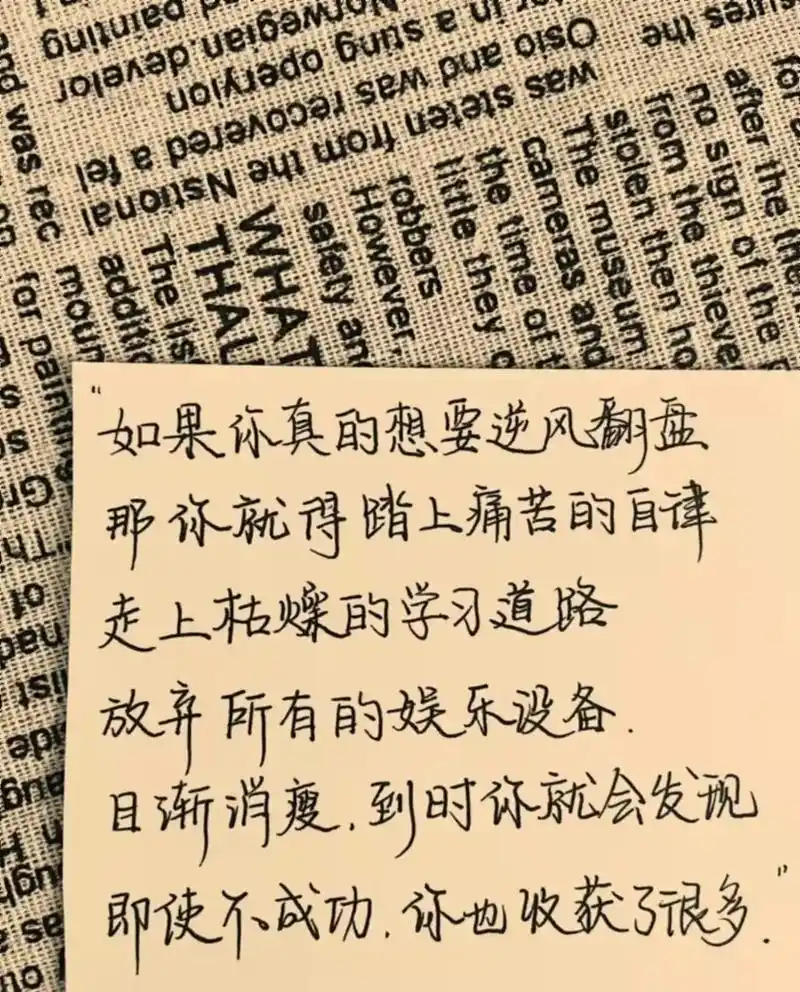 nd painting
Norwegian.develor
or in a stung operyion
Osio and was recovered a fel
was steten from the Nstional
sures the
and was rec
for painting
moun
additio
The lis
WHAT
THAL
safety an
However,
robbers
little they
the time of t
cameras and
The museum
stolen then ho
from the thieve
no sign of the
after the them
for
"如果你真的想要逆风翻盘
那你就得踏上痛苦的自律
走上枯燥的学习道路
放弃所有的娱乐设备.
日渐消瘦.到时你就会发现
即使不成功.你也收获了很多."